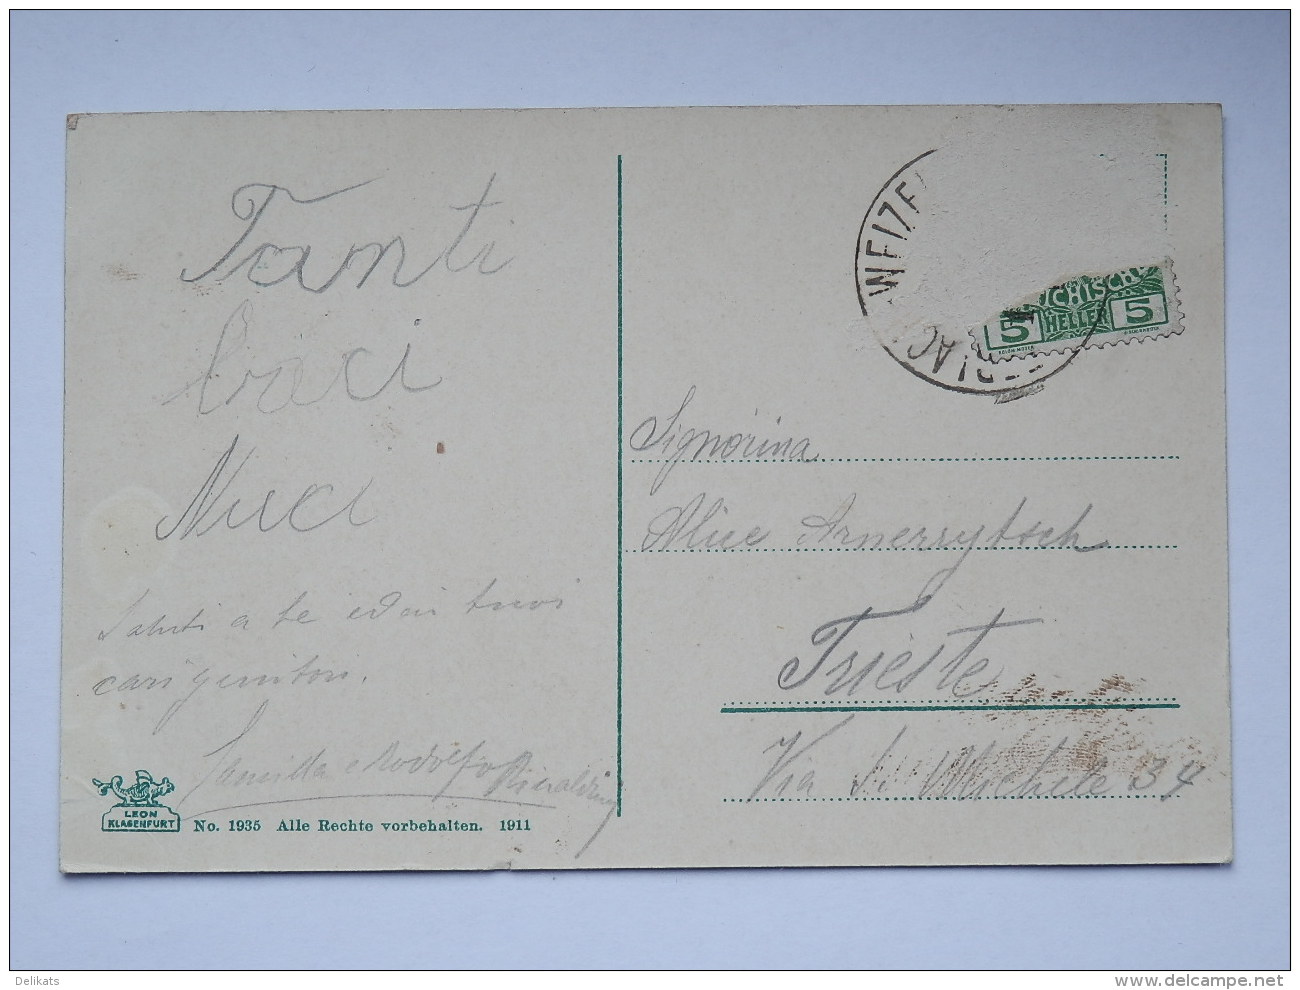 Tanti
baci
Nuci
Saluti a te ed ai tuoi
cari genitori.
Rodolfo
LEON
KLAGENFURT
No. 1935 Alle Rechte vorbehalten. 1911
CHISCH
5 HELLER 5
Signorina
Alice Arnerrytsch
Trieste
Via S. Michele 34
Delikats
delcampe.net